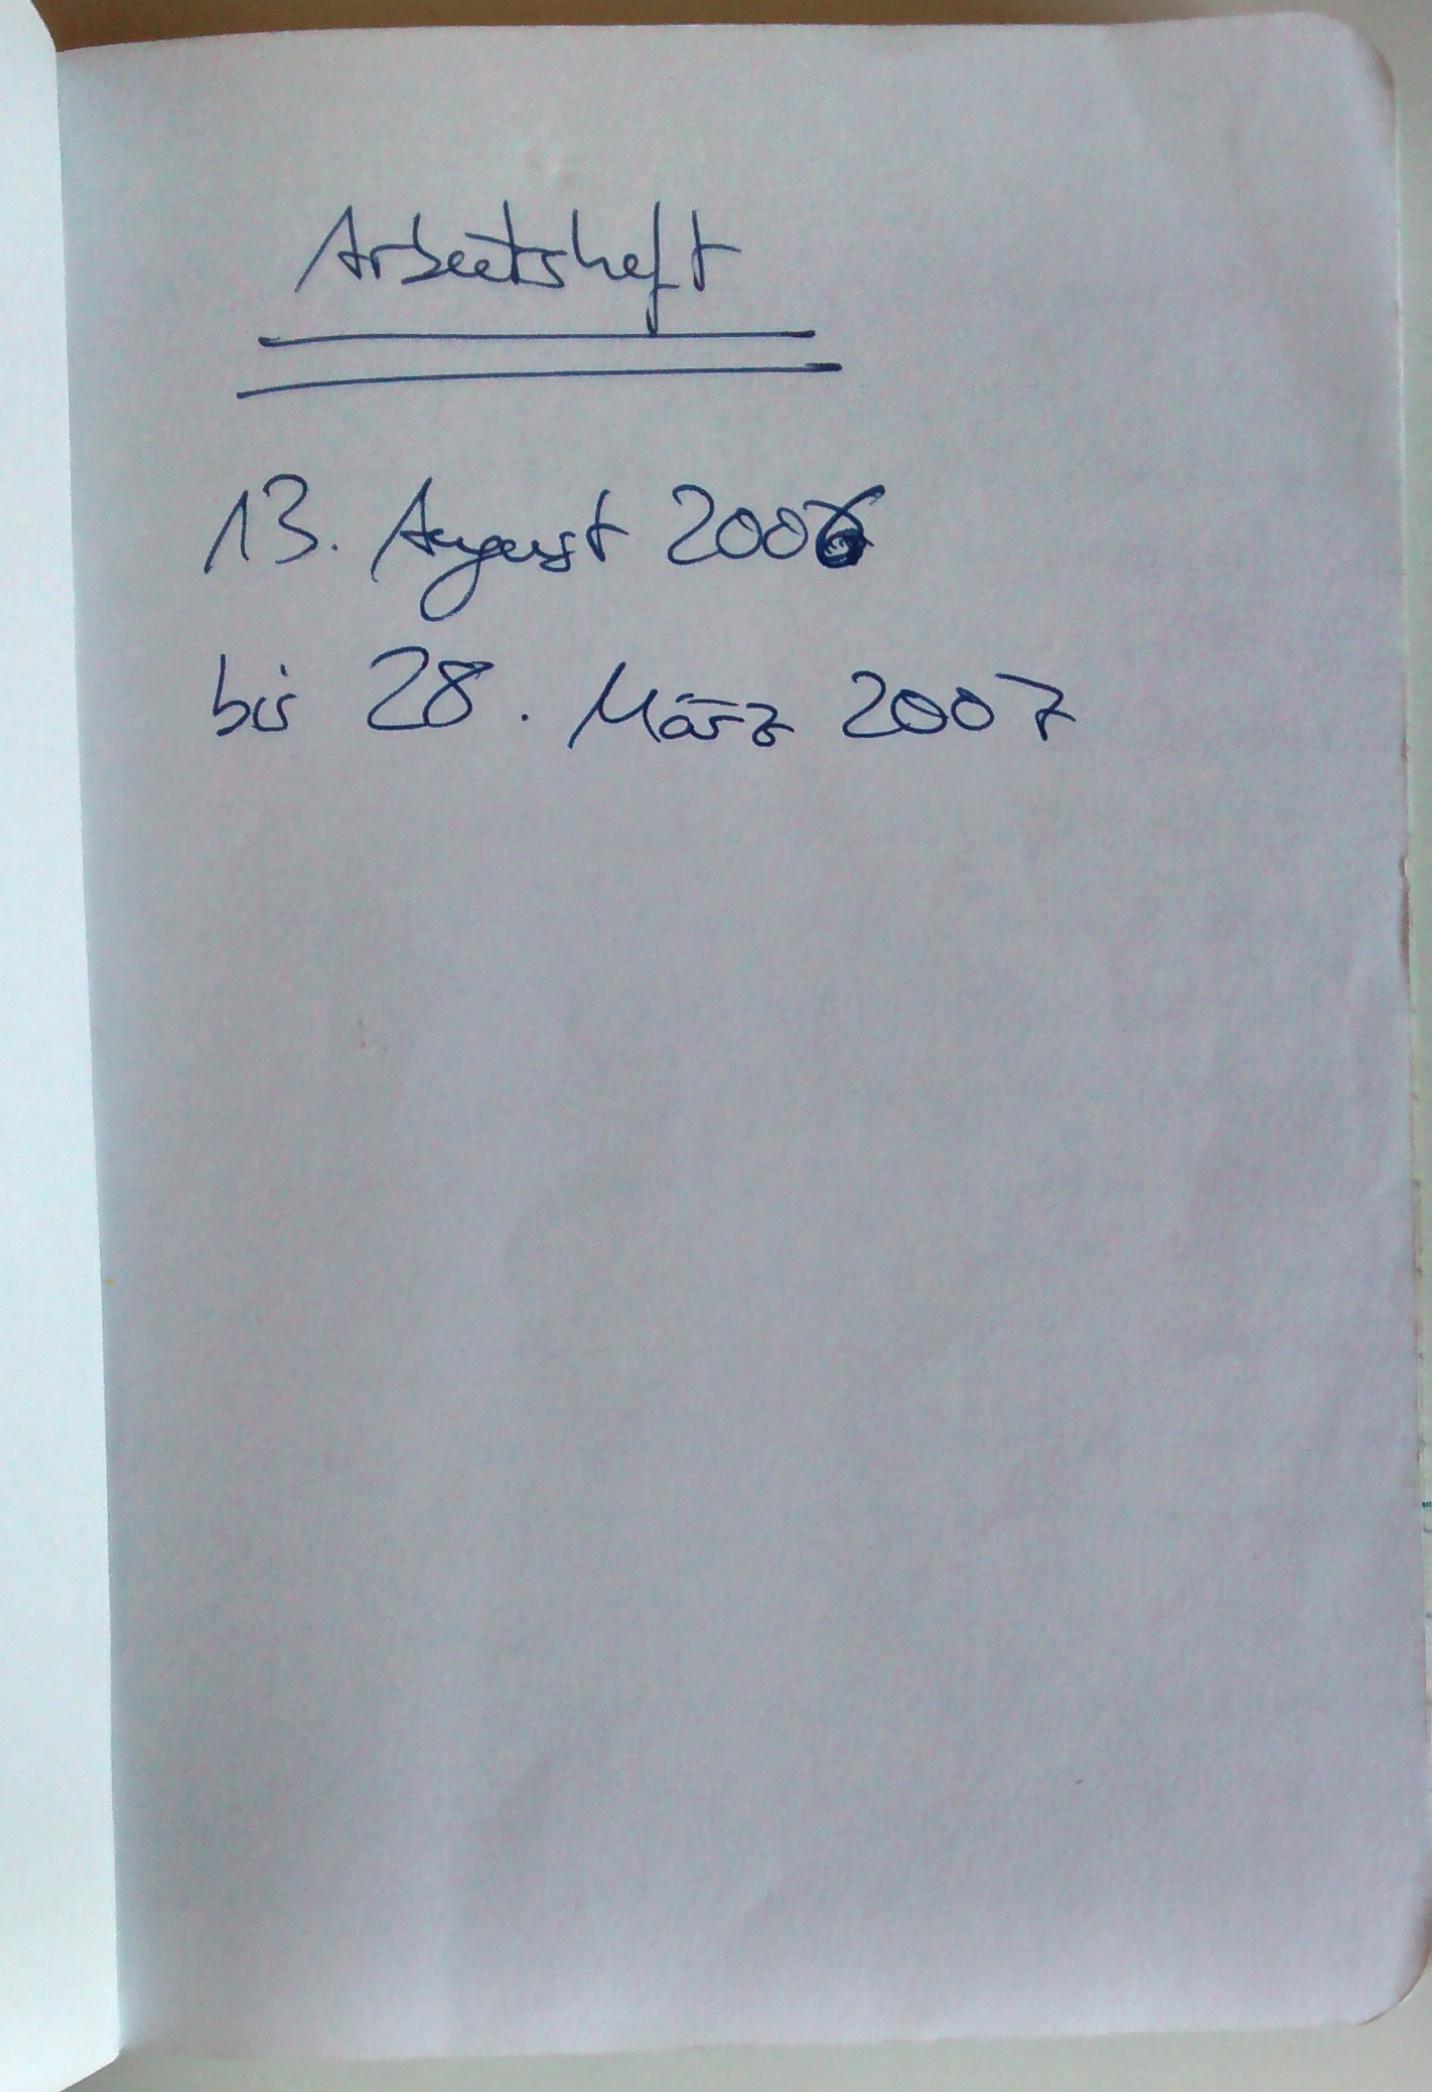 Arbeitsheft
13. August 2006
bis 28. März 2007